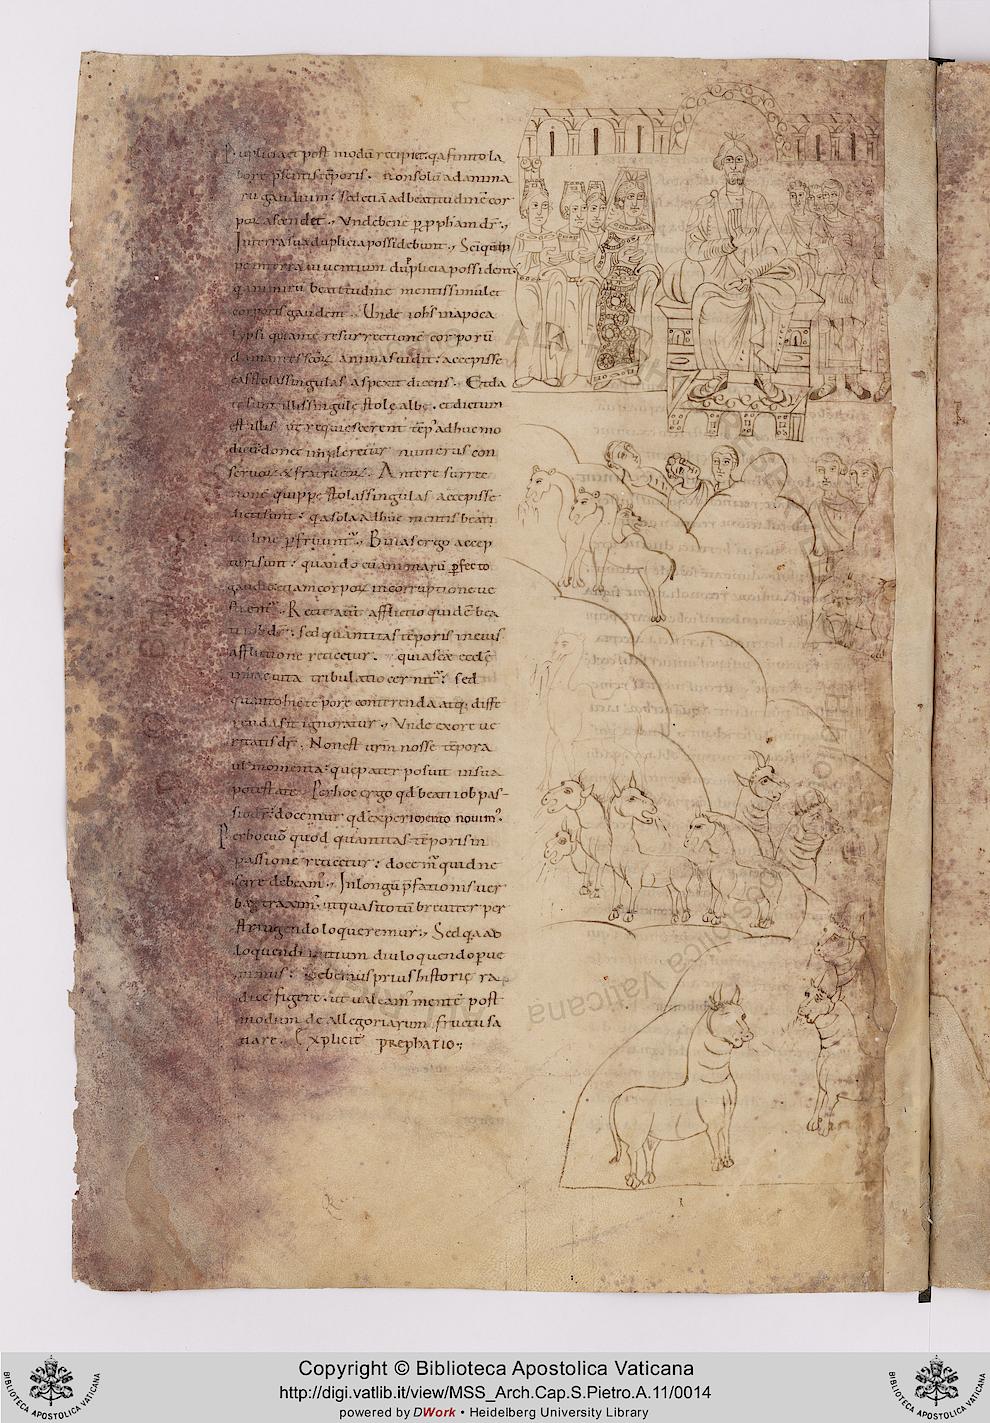 Duplicia et post modū recipiet. q̄a finito la
bore p̄sentis tēporis. Non solū ad anima
rū gaudium: sed etiā ad beatitudinē cor
porū ascendet., Vnde bene p̱ p̱phām dr̄.,
In terra sua duplicia possidebunt., Sc̄i quip
pe in terra uiuentium duplicia possident.
q̄a nimirū beatitudine mentis simul et
corporis gaudent., Unde iohs̄ in apoca
lypsi q̄a ante resurrectionē corporū
clamantes sc̄oꝝ animas uidit: accepisse
eas stolas singulas aspexit dicens., Et da
te sunt illis singulę stolę albę. et dictum
est illis ut requiescerent tēpꝰ adhuc mo
dicū donec impleretur numerus con
seruoꝝ & fratrū eoꝝ. Ante resurrec
tionē quippe stolas singulas accepisse
dicti sunt: q̄a sola adhuc mentis beati
tudine p̱fruunt᷑., Binas ergo accep
turi sunt: quando cū animarū p̱fecto
gaudio etiam corpoꝝ incorruptione ue
stient᷑., Recte aūt afflictio quidē bea
ti iob dr̄: sed quantitas tēporis in eius
afflictione reticetur., quia scę ecclę
in hac uita tribulatio cernit᷑: sed
quanto hic tēpore conterenda atq; diffe
renda sit ignoratur., Vnde ex ore ue
ritatis dr̄. Non est urm̄ nosse tēpora
uł momenta: quę pater posuit in sua
potestate., Per hoc ergo qd̄ beati iob pas-
sio dr̄: docemur qd̄ experimento nouim᷒.
Per hoc uō quod quantitas tēporis in
passione reticetur: docem᷑ quid ne
scire debeam᷒., In longū p̄fationis uer
ba traxim᷒. ut quasi totū breuiter per
stringendo loqueremur., Sed q̄a ad
loquendi initium diu loquendo pue
nimus: debemus prius historię ra
dicē figere. ut ualeam᷒ mentē post
modum de allegoriarum fructu sa
tiare. Explicit prephatio.,
Copyright © Biblioteca Apostolica Vaticana
http://digi.vatlib.it/view/MSS_Arch.Cap.S.Pietro.A.11/0014
powered by DWork • Heidelberg University Library
BIBLIOTECA APOSTOLICA VATICANA
BIBLIOTECA APOSTOLICA VATICANA